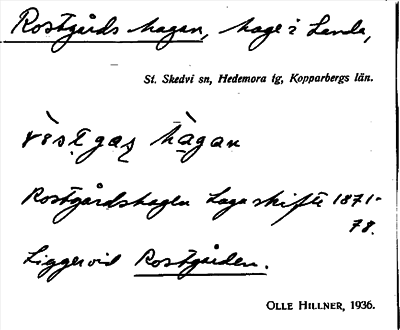 Rostgårds hagan, hage i Landa,
St. Skedvi sn, Hedemora tg, Kopparbergs län.
hàgan
Rostgårdshagen Laga skifte 1871-
78.
Ligger vid Rostgården.
OLLE HILLNER, 1936.